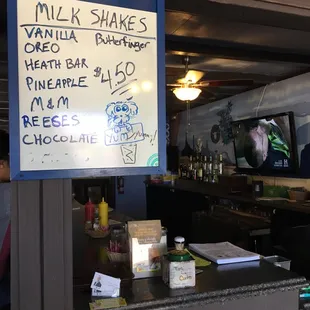 MILK SHAKES
VANILLA Butterfinger
OREO
HEATH BAR
PINEAPPLE $4.50
M&M
REESES
CHOCOLATE YUM